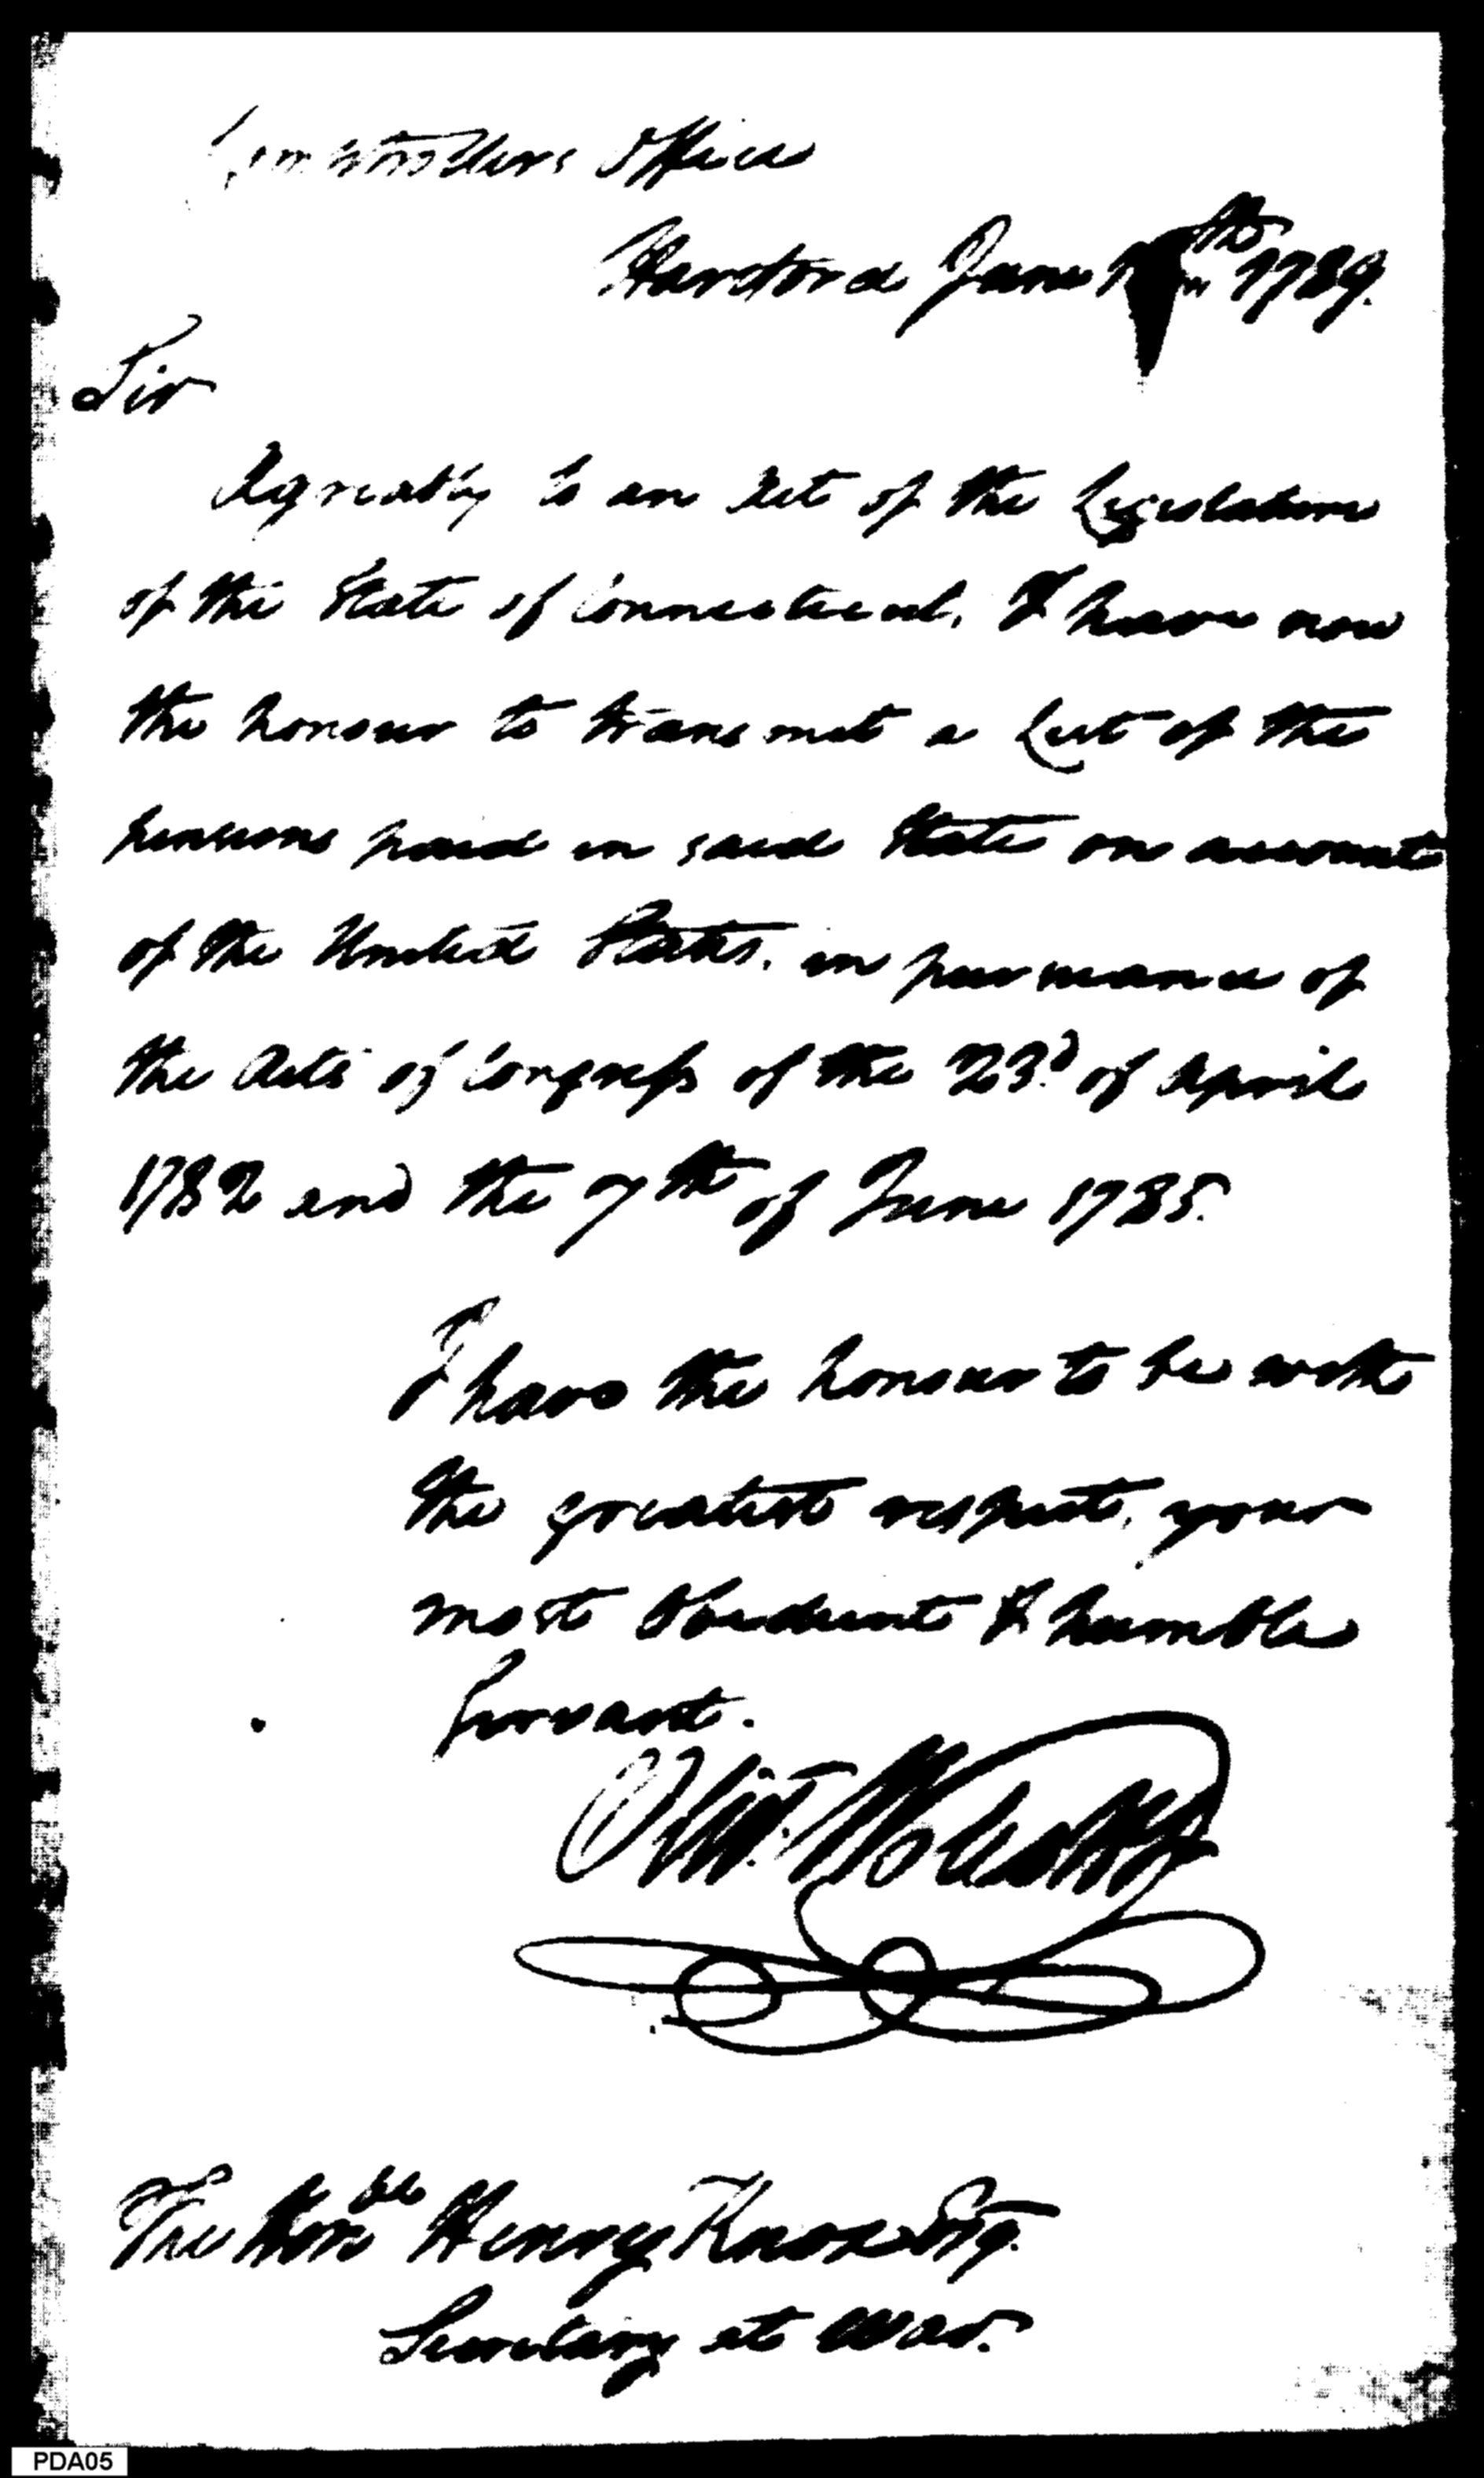 Comptrollers Office
Hartford June 1789.
Sir
Agreably to an Act of the Legislature
of the State of Connecticut, I have now
the honour to transmit a List of the
pensions paid in said State on account
of the United States, in pursuance of
the Acts of Congress of the 23.d of April
1782 and the 7th of June 1785.
I have the honour to be with
the greatest respect, your
most Obedient & humble
Servant.
Olivr. Wolcott Jr
The Honble Henry Knox Esq.
Secretary at War.
PDA05